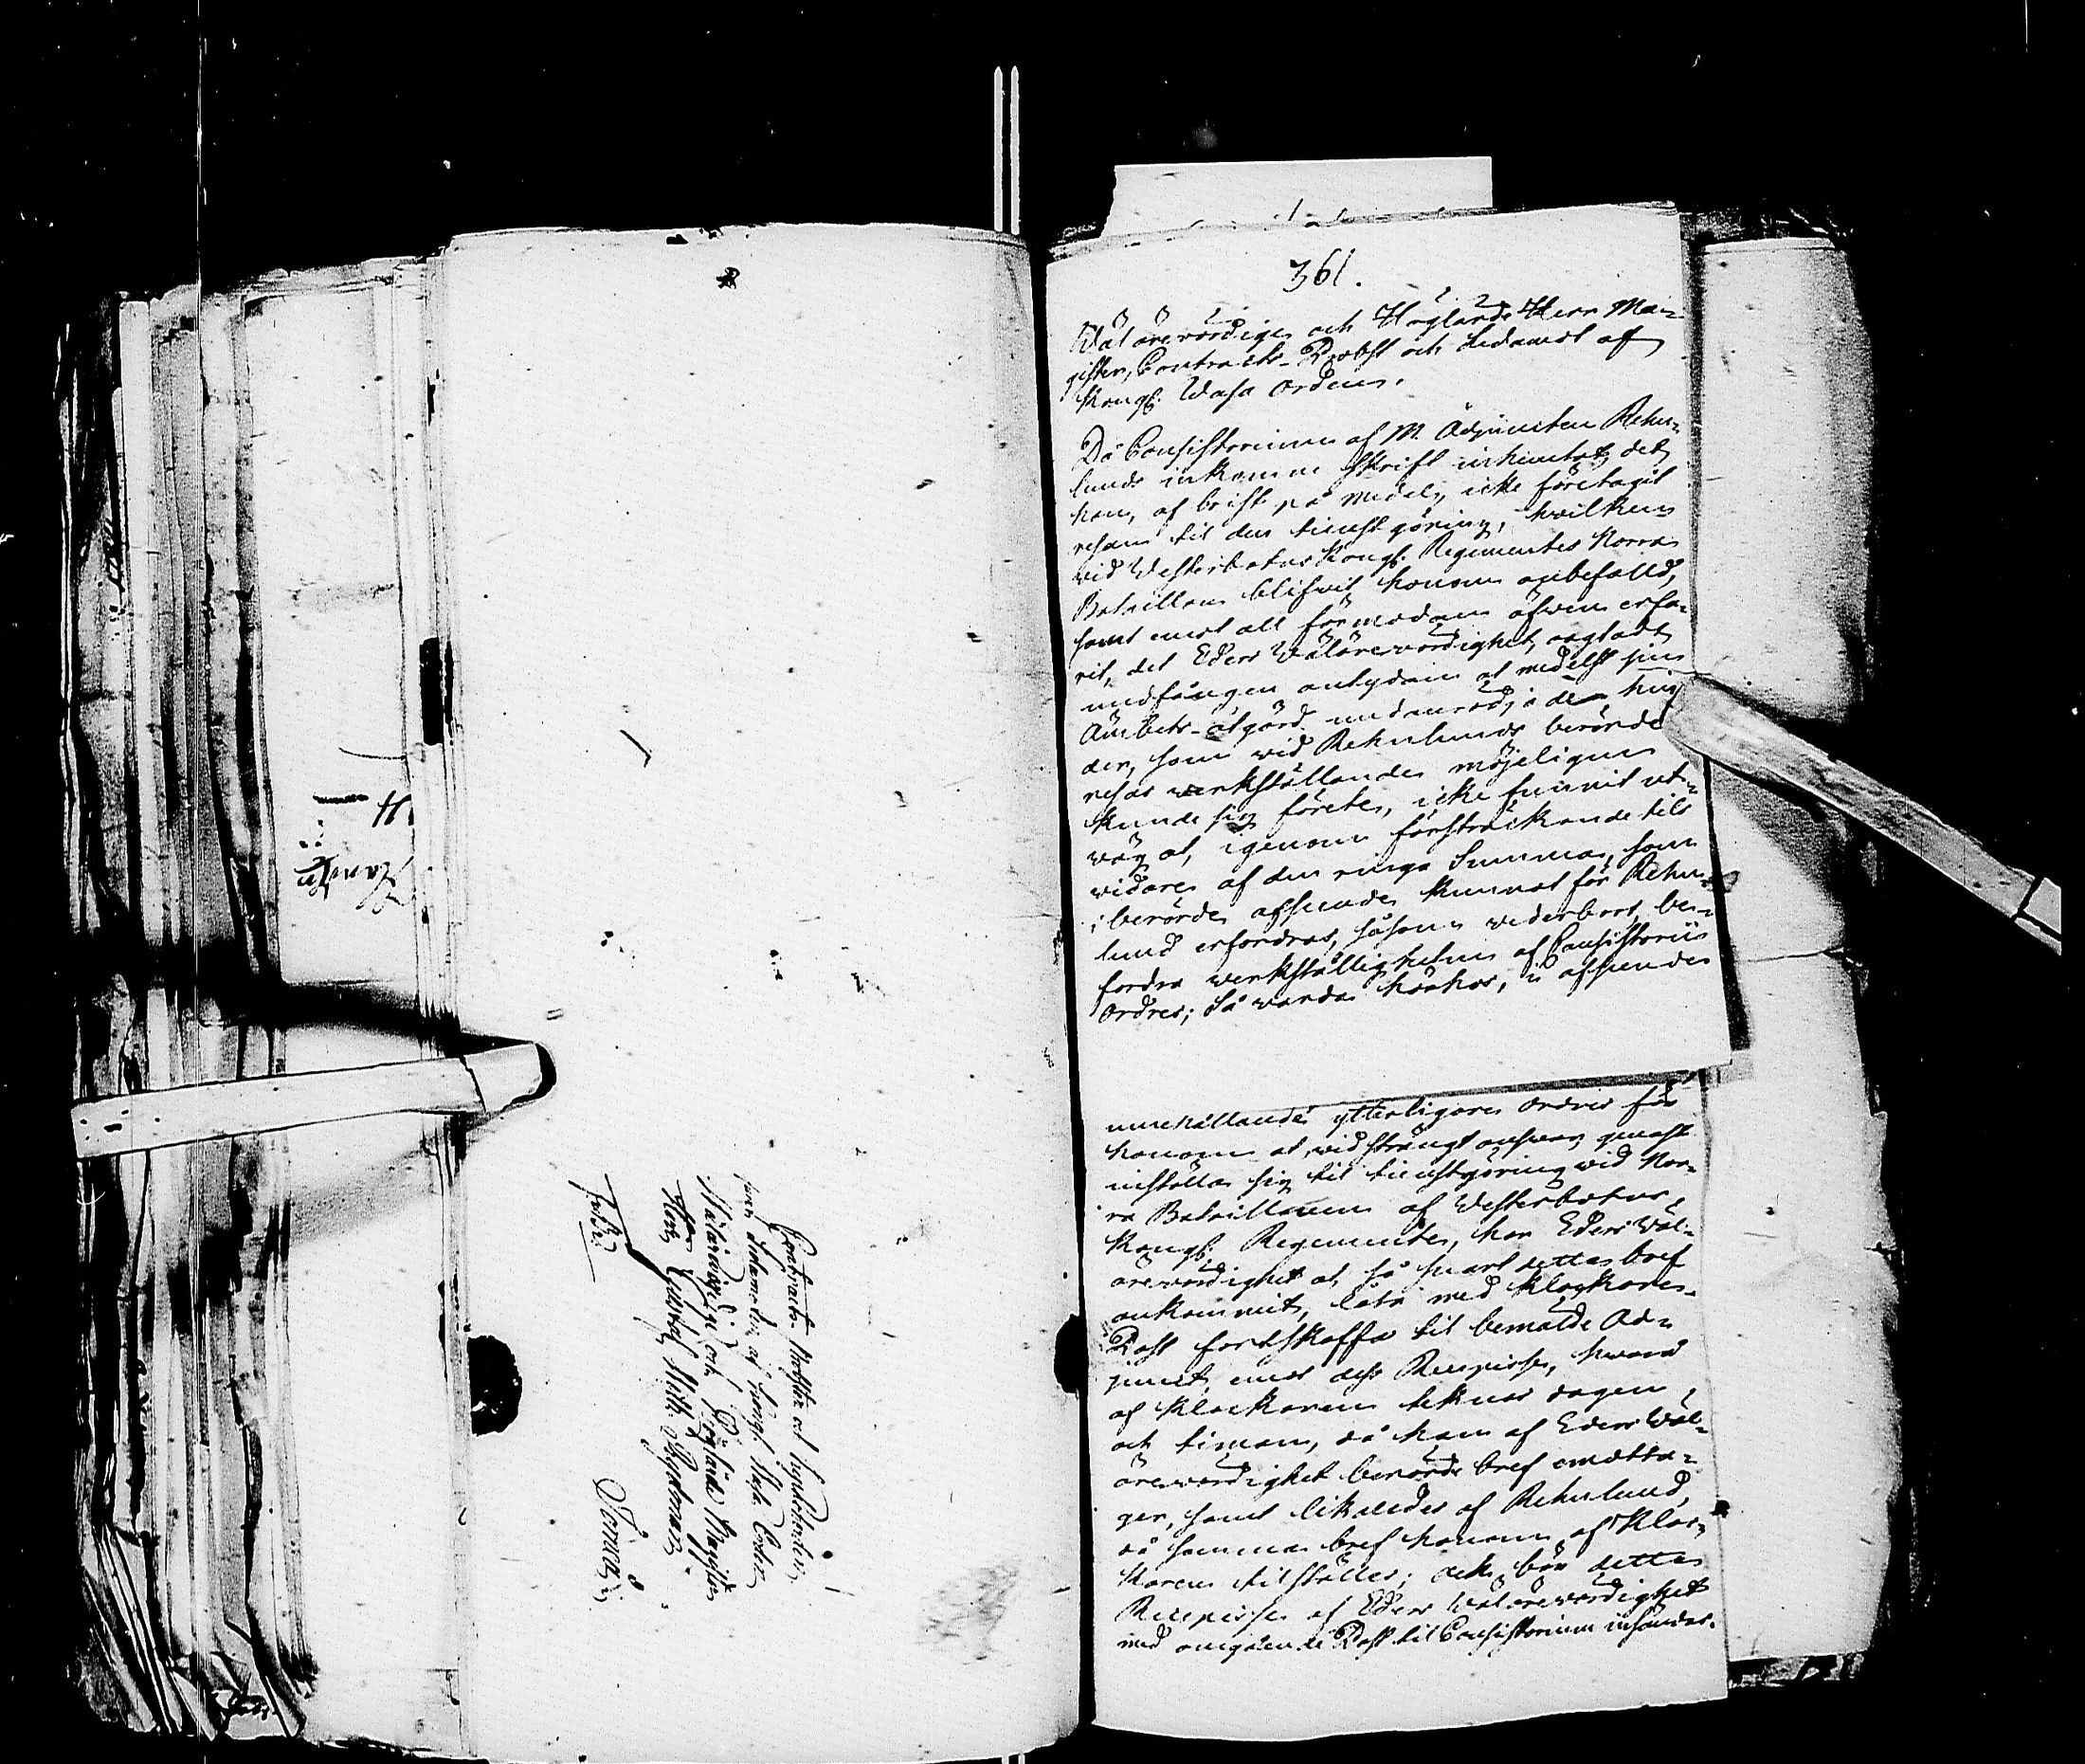 361.
Wäl ärewördige och Höglärde Herr Ma-
gister, Contracts-Probst och Ledamot af
Kongl. Wasa Orden.
Då Consistorium af M. Adjuncten Rehn-
lunds inkomne skrift inhemtat, det
han, af brist på medel, icke företagit
resan til den tienstgöring, hvilken
vid Westerbotns Kongl. Regementes Norra
Bataillon blifvit honom anbefalld,
samt emot all förmodan äfven erfa-
rit, det Eders Wälärevördighet, oagtadt
undfången antydan at medelst sin
Ämbets-åtgärd undanrödja de hin-
der, som vid Rehnlunds berörde
resas verkställande möjeligen
kunde sig förete, icke funnit ut-
väg at, igenom försträckande tils
vidare af den ringa Summa, som
i berörde afseende kunnat för Rehn-
lund erfordras, såsom vederbort, be-
fordra verkställigheten af Consistorii
Ordres; Så varder härhos, i afseende
innehållande ytterligare ordres för
honom at, vid strängt answar, genast
inställa sig til tienstgöring vid Nor-
ra Bataillonen af Westerbotns
Kongl. Regemente, har Eders Wäl-
ärevördighet at, så snart detta bref
ankommit, låta med Klockare-
Post fortskaffa til bemälde Ad-
junct, emot dess Recepisse, hvarå
af Klockaren teknas dagen,
och timan, då han af Eders Wäl-
ärevördighet berörde bref emotta-
ger, samt likaledes af Rehnlund,
då samma bref honom af Kloc-
karen tilställes; och bör detta
Recepisse af Eders Wälärevördighet
med omgående Post til Consistorium insändas.
Contracts-Probsten och Kyrkoherden,
samt Ledamoten af Kongl. Wasa Orden
Wälärewördige och Höglärde Magister
Herr
Umeå